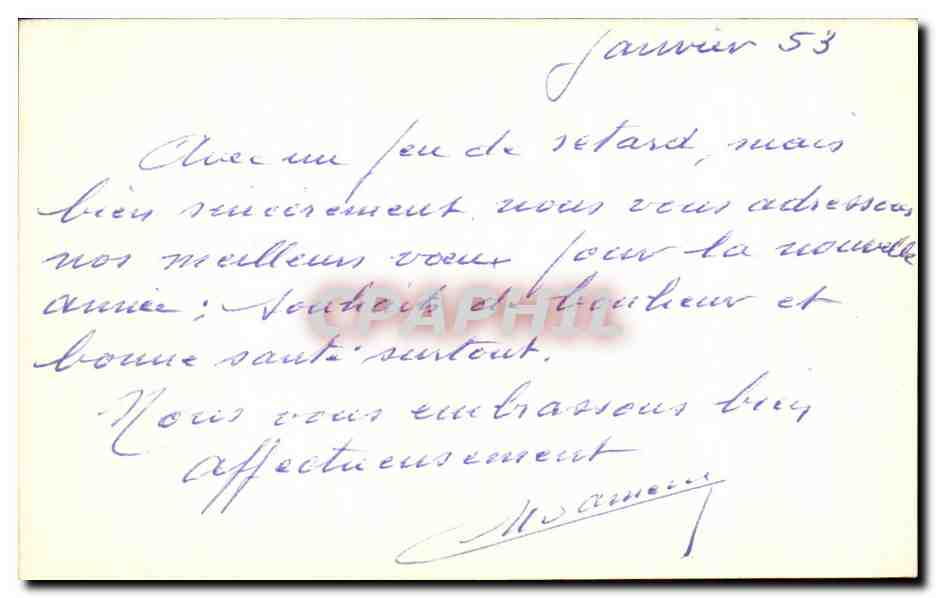 Janvier 53
Avec un peu de retard, mais
bien sincèrement, nous vous adressons
nos meilleurs vœux pour la nouvelle
année ; souhaits de bonheur et
bonne santé surtout.
Nous vous embrassons bien
affectueusement
CPAPHIL